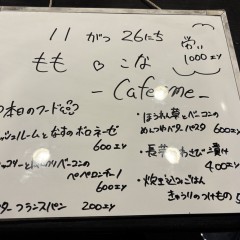 11がつ26にち
もも♡こな
- Cafe me -
1000エン
本日のフード
ッシュルームとなすのボロネーゼ
600エン
ベーコンの
ペペロンチーノ
600エン
ターフランスパン 200エン
・ほうれん草とベーコンの
めんつゆバターパスタ 600エン
・長芋わさび漬け
400エン
・炊き込みごはん
きゅうりのつけもの